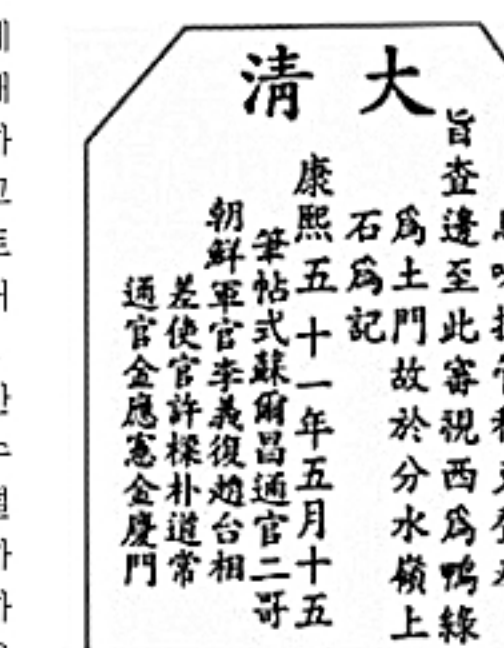 大清
旨査邊至此審視西爲鴨綠
爲土門故於分水嶺上
石爲記
康熙五十一年五月十五
筆帖式蘇爾昌通官二哥
朝鮮軍官李義復趙台相
差使官許樑朴道常
通官金應憲金慶門